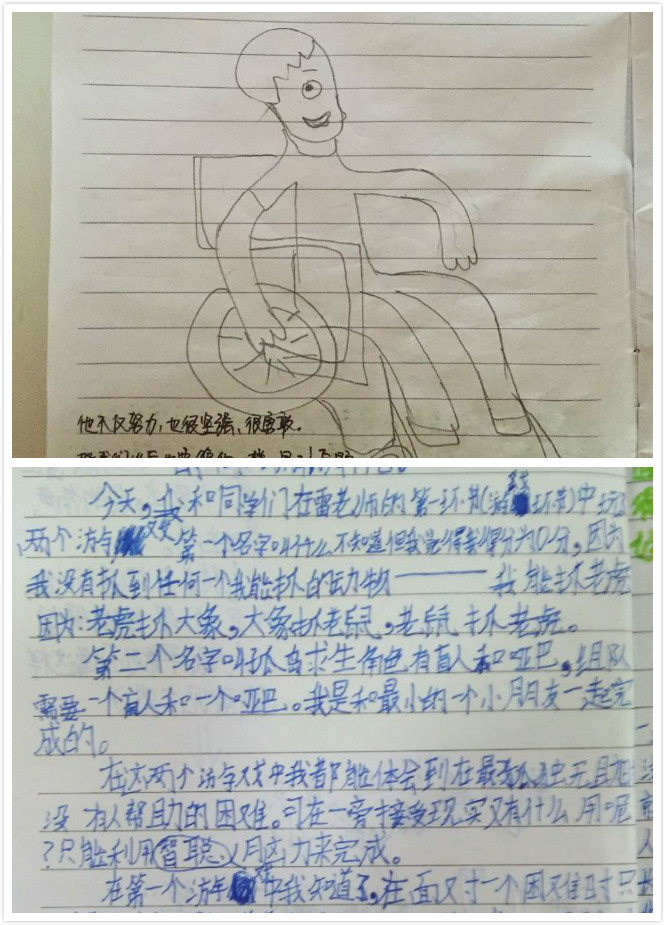 他不仅努力,也很坚强,很勇敢。
今天,我和同学们在雷老师的第一环节(游戏环节)中玩
两个游戏 第一个名字叫什么不知道但我觉得我得分为0分,因为
我没有抓到任何一个我能抓的动物—— 我能抓老虎
因为:老虎抓大象,大象抓老鼠,老鼠抓老虎。
第二个名字叫孤岛求生角色有盲人和哑巴,组队
需要一个盲人和一个哑巴。我是和最小的一个小朋友一起完
成的。
在这两个游戏中我都能体会到在最孤独无且
没有人帮助的困难。可在一旁接受现实又有什么用呢
?只能利用智聪、月力来完成。
在第一个游戏中我知道了,在面对一个困难时只